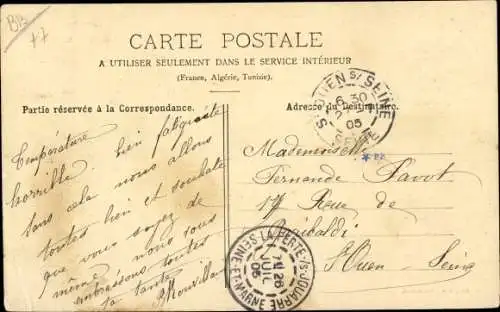 BB
77
CARTE POSTALE
A UTILISER SEULEMENT DANS LE SERVICE INTÉRIEUR
(France, Algérie, Tunisie).
Partie réservée à la Correspondance.
Adresse du Destinataire.
Température
horrible. bien fatiguante
sans cela nous allons
toutes bien et souhaite
que vous soyez de
même nous vous
embrassons toutes
ta tante
Mademoiselle
Fernande Pavot
17 Rue de
Garibaldi
St Ouen Seine
ST OUEN S/ SEINE
6 30
05
SEINE
LA FERTE-S/S-JOUARRE
JUIL
05
SEINE-ET-MARNE